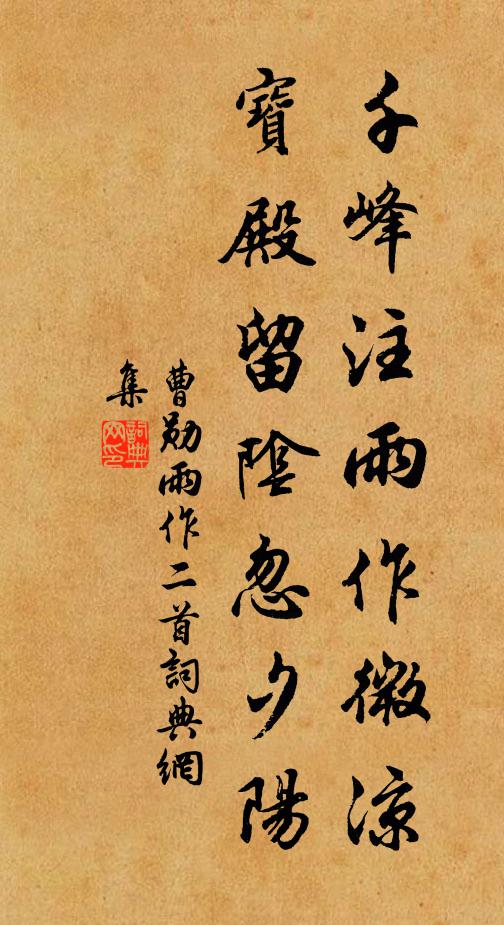 千峰注雨作微涼
寶殿留陰忽夕陽
曹勛雨作二首詞典網
集
詞典
网印